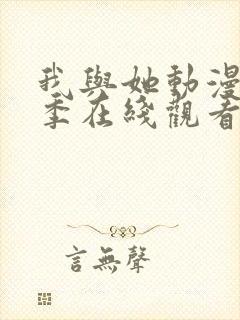 我與她動漫
季在綫觀看
言無聲